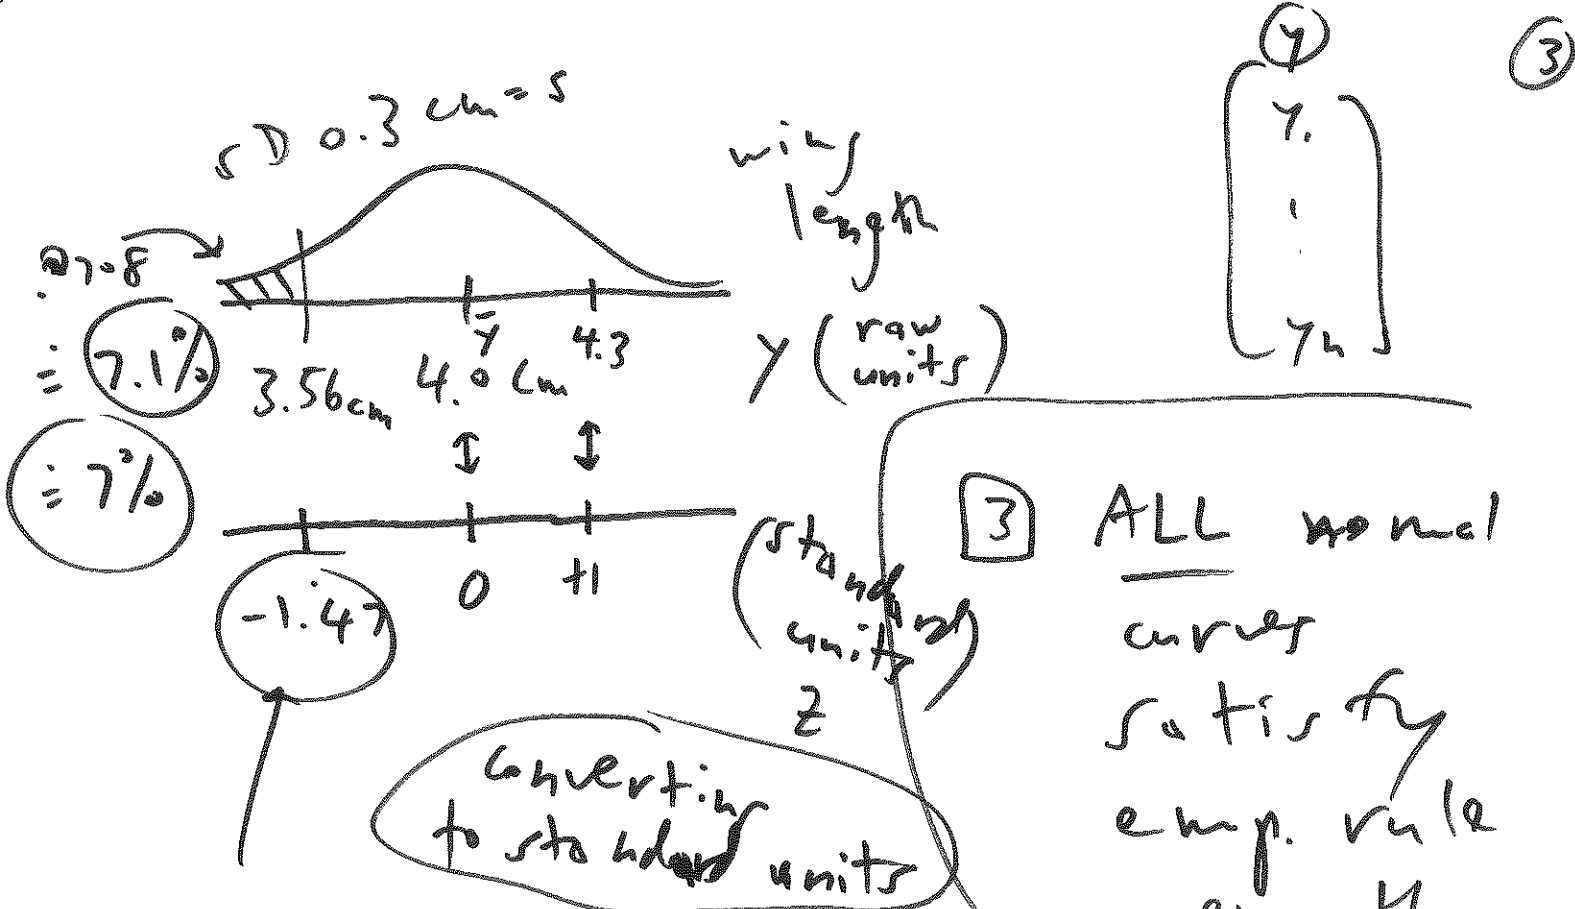 y
3
SD 0.3 cm = s
y1
.
.
yn
wing
length
.0708
≐ 7.1%
≐ 7%
ȳ
4.3
3.56cm
4.0 cm
y (raw
units)
-1.47
0
+1
(standard
units)
z
converting
to standard units
3 ALL normal
curves
satisfy
emp. rule